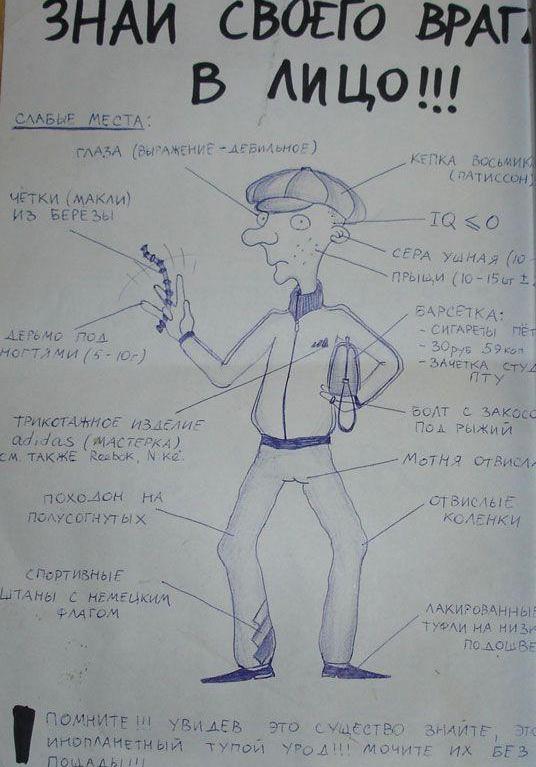 ЗНАЙ СВОЕГО ВРАГА
В ЛИЦО!!!
СЛАБЫЕ МЕСТА:
ГЛАЗА (ВЫРАЖЕНИЕ - ДЕБИЛЬНОЕ)
КЕПКА ВОСЬМИК
(ПАТИССОН)
ЧЁТКИ (МАКЛИ)
ИЗ БЕРЕЗЫ
IQ ⩽ 0
СЕРА УШНАЯ (10-
ПРЫЩИ (10-15шт ±
БАРСЕТКА:
- СИГАРЕТЫ ПЁТ
- 30 руб 59 коп
- ЗАЧЕТКА СТУД
ПТУ
ДЕРЬМО ПОД
НОГТЯМИ (5-10г)
БОЛТ С ЗАКОСО
ПОД РЫЖИЙ
ТРИКОТАЖНОЕ ИЗДЕЛИЕ
adidas (МАСТЕРКА)
СМ. ТАКЖЕ Reebok, Nike.
МОТНЯ ОТВИСЛА
ПОХОДОН НА
ПОЛУСОГНУТЫХ
ОТВИСЛЫЕ
КОЛЕНКИ
СПОРТИВНЫЕ
ШТАНЫ С НЕМЕЦКИМ
ФЛАГОМ
ЛАКИРОВАННЫЕ
ТУФЛИ НА НИЗК
ПОДОШВЕ
! ПОМНИТЕ!!! УВИДЕВ ЭТО СУЩЕСТВО ЗНАЙТЕ, ЭТО
ИНОПЛАНЕТНЫЙ ТУПОЙ УРОД!!! МОЧИТЕ ИХ БЕЗ
ПОЩАДЫ!!!